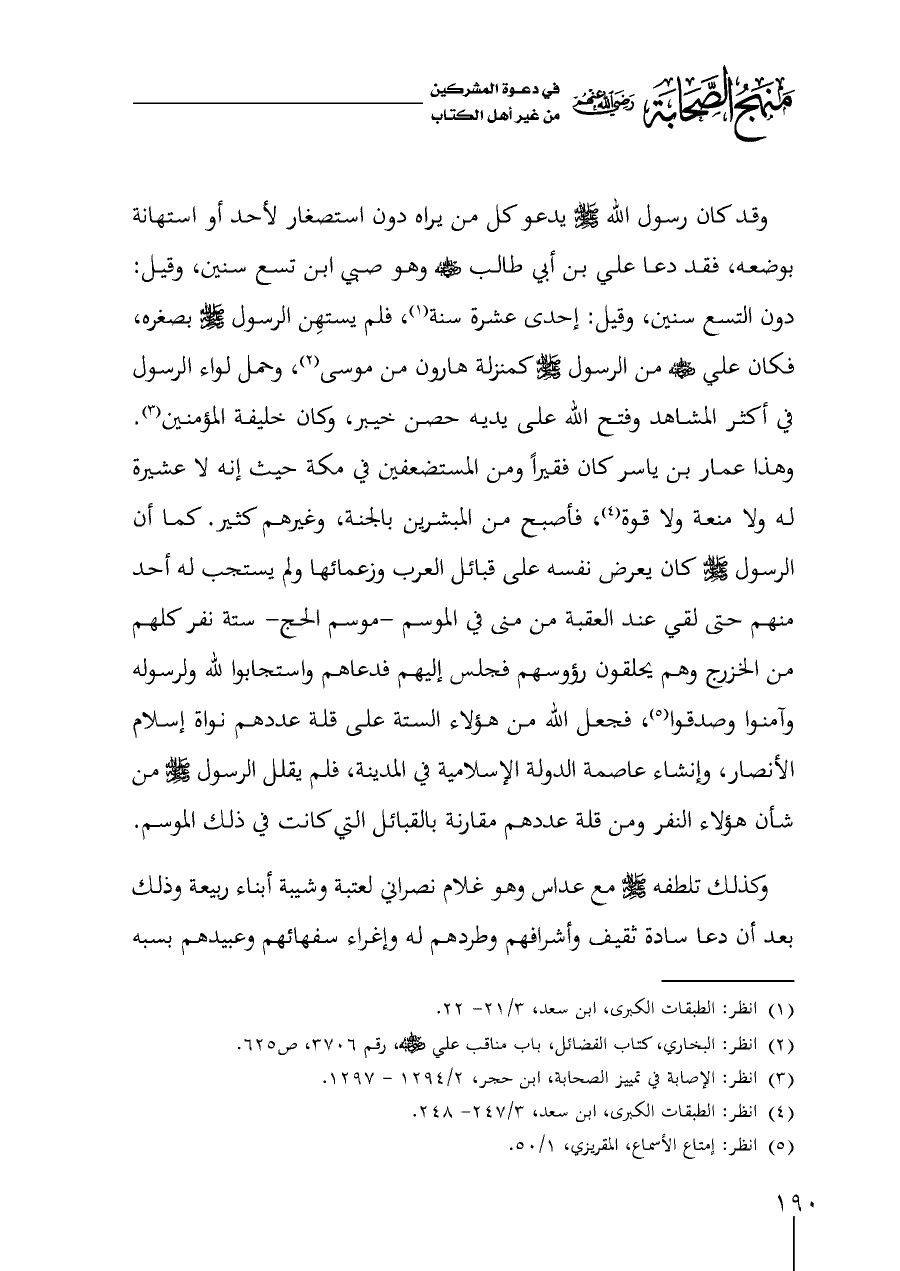 منهج الصحابة رضي الله عنهم
في دعوة المشركين
من غير أهل الكتاب
وقد كان رسول الله ﷺ يدعو كل من يراه دون استصغار لأحد أو استهانة
بوضعه، فقد دعا علي بن أبي طالب رضي الله عنه وهو صبي ابن تسع سنين، وقيل:
دون التسع سنين، وقيل: إحدى عشرة سنة(١)، فلم يستهِن الرسول ﷺ بصغره،
فكان علي رضي الله عنه من الرسول ﷺ كمنزلة هارون من موسى(٢)، وحمل لواء الرسول
في أكثر المشاهد وفتح الله على يديه حصن خيبر، وكان خليفة المؤمنين(٣).
وهذا عمار بن ياسر كان فقيراً ومن المستضعفين في مكة حيث إنه لا عشيرة
له ولا منعة ولا قوة(٤)، فأصبح من المبشرين بالجنة، وغيرهم كثير. كما أن
الرسول ﷺ كان يعرض نفسه على قبائل العرب وزعمائها ولم يستجب له أحد
منهم حتى لقي عند العقبة من منى في الموسم -موسم الحج- ستة نفر كلهم
من الخزرج وهم يحلقون رؤوسهم فجلس إليهم فدعاهم واستجابوا لله ولرسوله
وآمنوا وصدقوا(٥)، فجعل الله من هؤلاء الستة على قلة عددهم نواة إسلام
الأنصار، وإنشاء عاصمة الدولة الإسلامية في المدينة، فلم يقلل الرسول ﷺ من
شأن هؤلاء النفر ومن قلة عددهم مقارنة بالقبائل التي كانت في ذلك الموسم.
وكذلك تلطفه ﷺ مع عداس وهو غلام نصراني لعتبة وشيبة أبناء ربيعة وذلك
بعد أن دعا سادة ثقيف وأشرافهم وطردهم له وإغراء سفهائهم وعبيدهم بسبه
(١) انظر: الطبقات الكبرى، ابن سعد، ٢١/٣- ٢٢.
(٢) انظر: البخاري، كتاب الفضائل، باب مناقب علي رضي الله عنه، رقم ٣٧٠٦، ص٦٢٥.
(٣) انظر: الإصابة في تمييز الصحابة، ابن حجر، ١٢٩٤/٢ - ١٢٩٧.
(٤) انظر: الطبقات الكبرى، ابن سعد، ٢٤٧/٣- ٢٤٨.
(٥) انظر: إمتاع الأسماع، المقريزي، ٥٠/١.
١٩٠